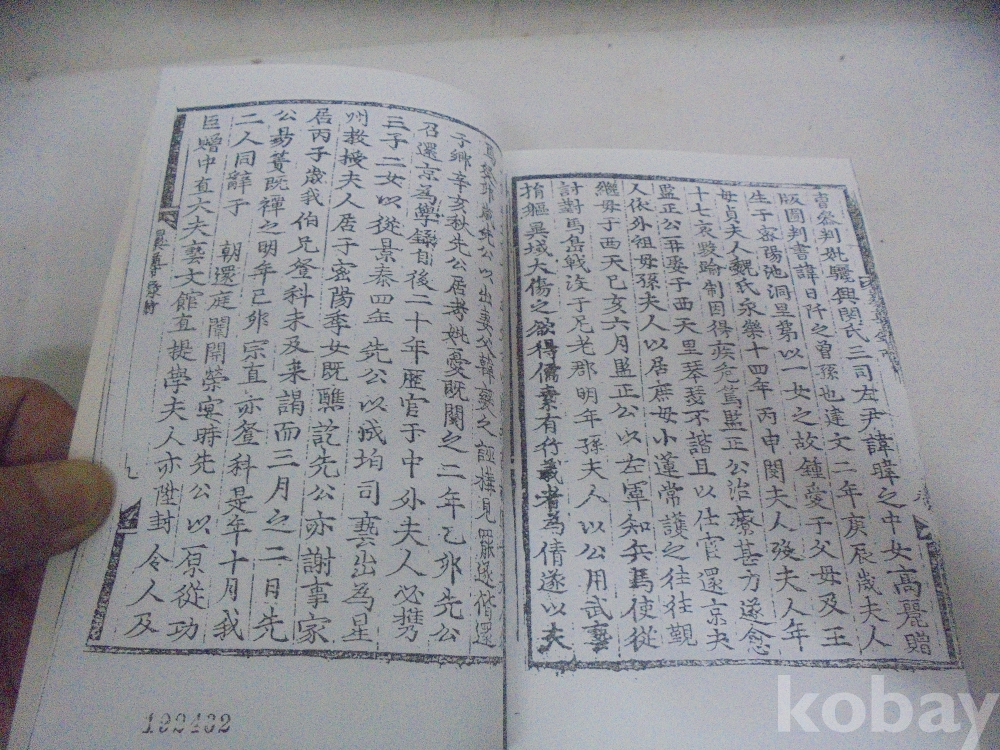 曹參判妣驪興閔氏三司左尹諱暐之中女高麗贈
版圖判書諱日阡之曾孫也建文二年庚辰歲夫人
生于密陽池洞里第以一女之故鍾愛于父母及王
母貞夫人魏氏永樂十四年丙申閔夫人歿夫人年
十七哀毀踰制因得疾危篤監正公治療甚方遂愈
監正公再娶于西天里琴瑟不諧且以仕官還京夫
人依外祖母孫夫人以居庶母小蓮常護之往往覲
繼母于西天己亥六月監正公以左軍知兵馬使從
討對馬島戰沒于尼老郡明年孫夫人以公用武藝
捐軀異域大傷之欲得儒素有行義者爲倩遂以夫
公以出妻父韓變之誣搆見罷遂偕還
于鄉辛亥秋先公居考妣憂既闋之二年乙卯先公
召還京爲學錄自後二十年歷官于中外夫人必攜
三子二女以從景泰四年 先公以成均司藝出爲星
州教授夫人居于密陽季女既醮訖先公亦謝事家
居丙子歲我伯兄登科未及来謁而三月之二日先
公易簀既禫之明年己卯宗直亦登科是年十月我
二人同辭于 朝還庭闈開榮宴時先公以原從功
臣贈中直大夫藝文館直提學夫人亦陞封令人及
102432
kobay